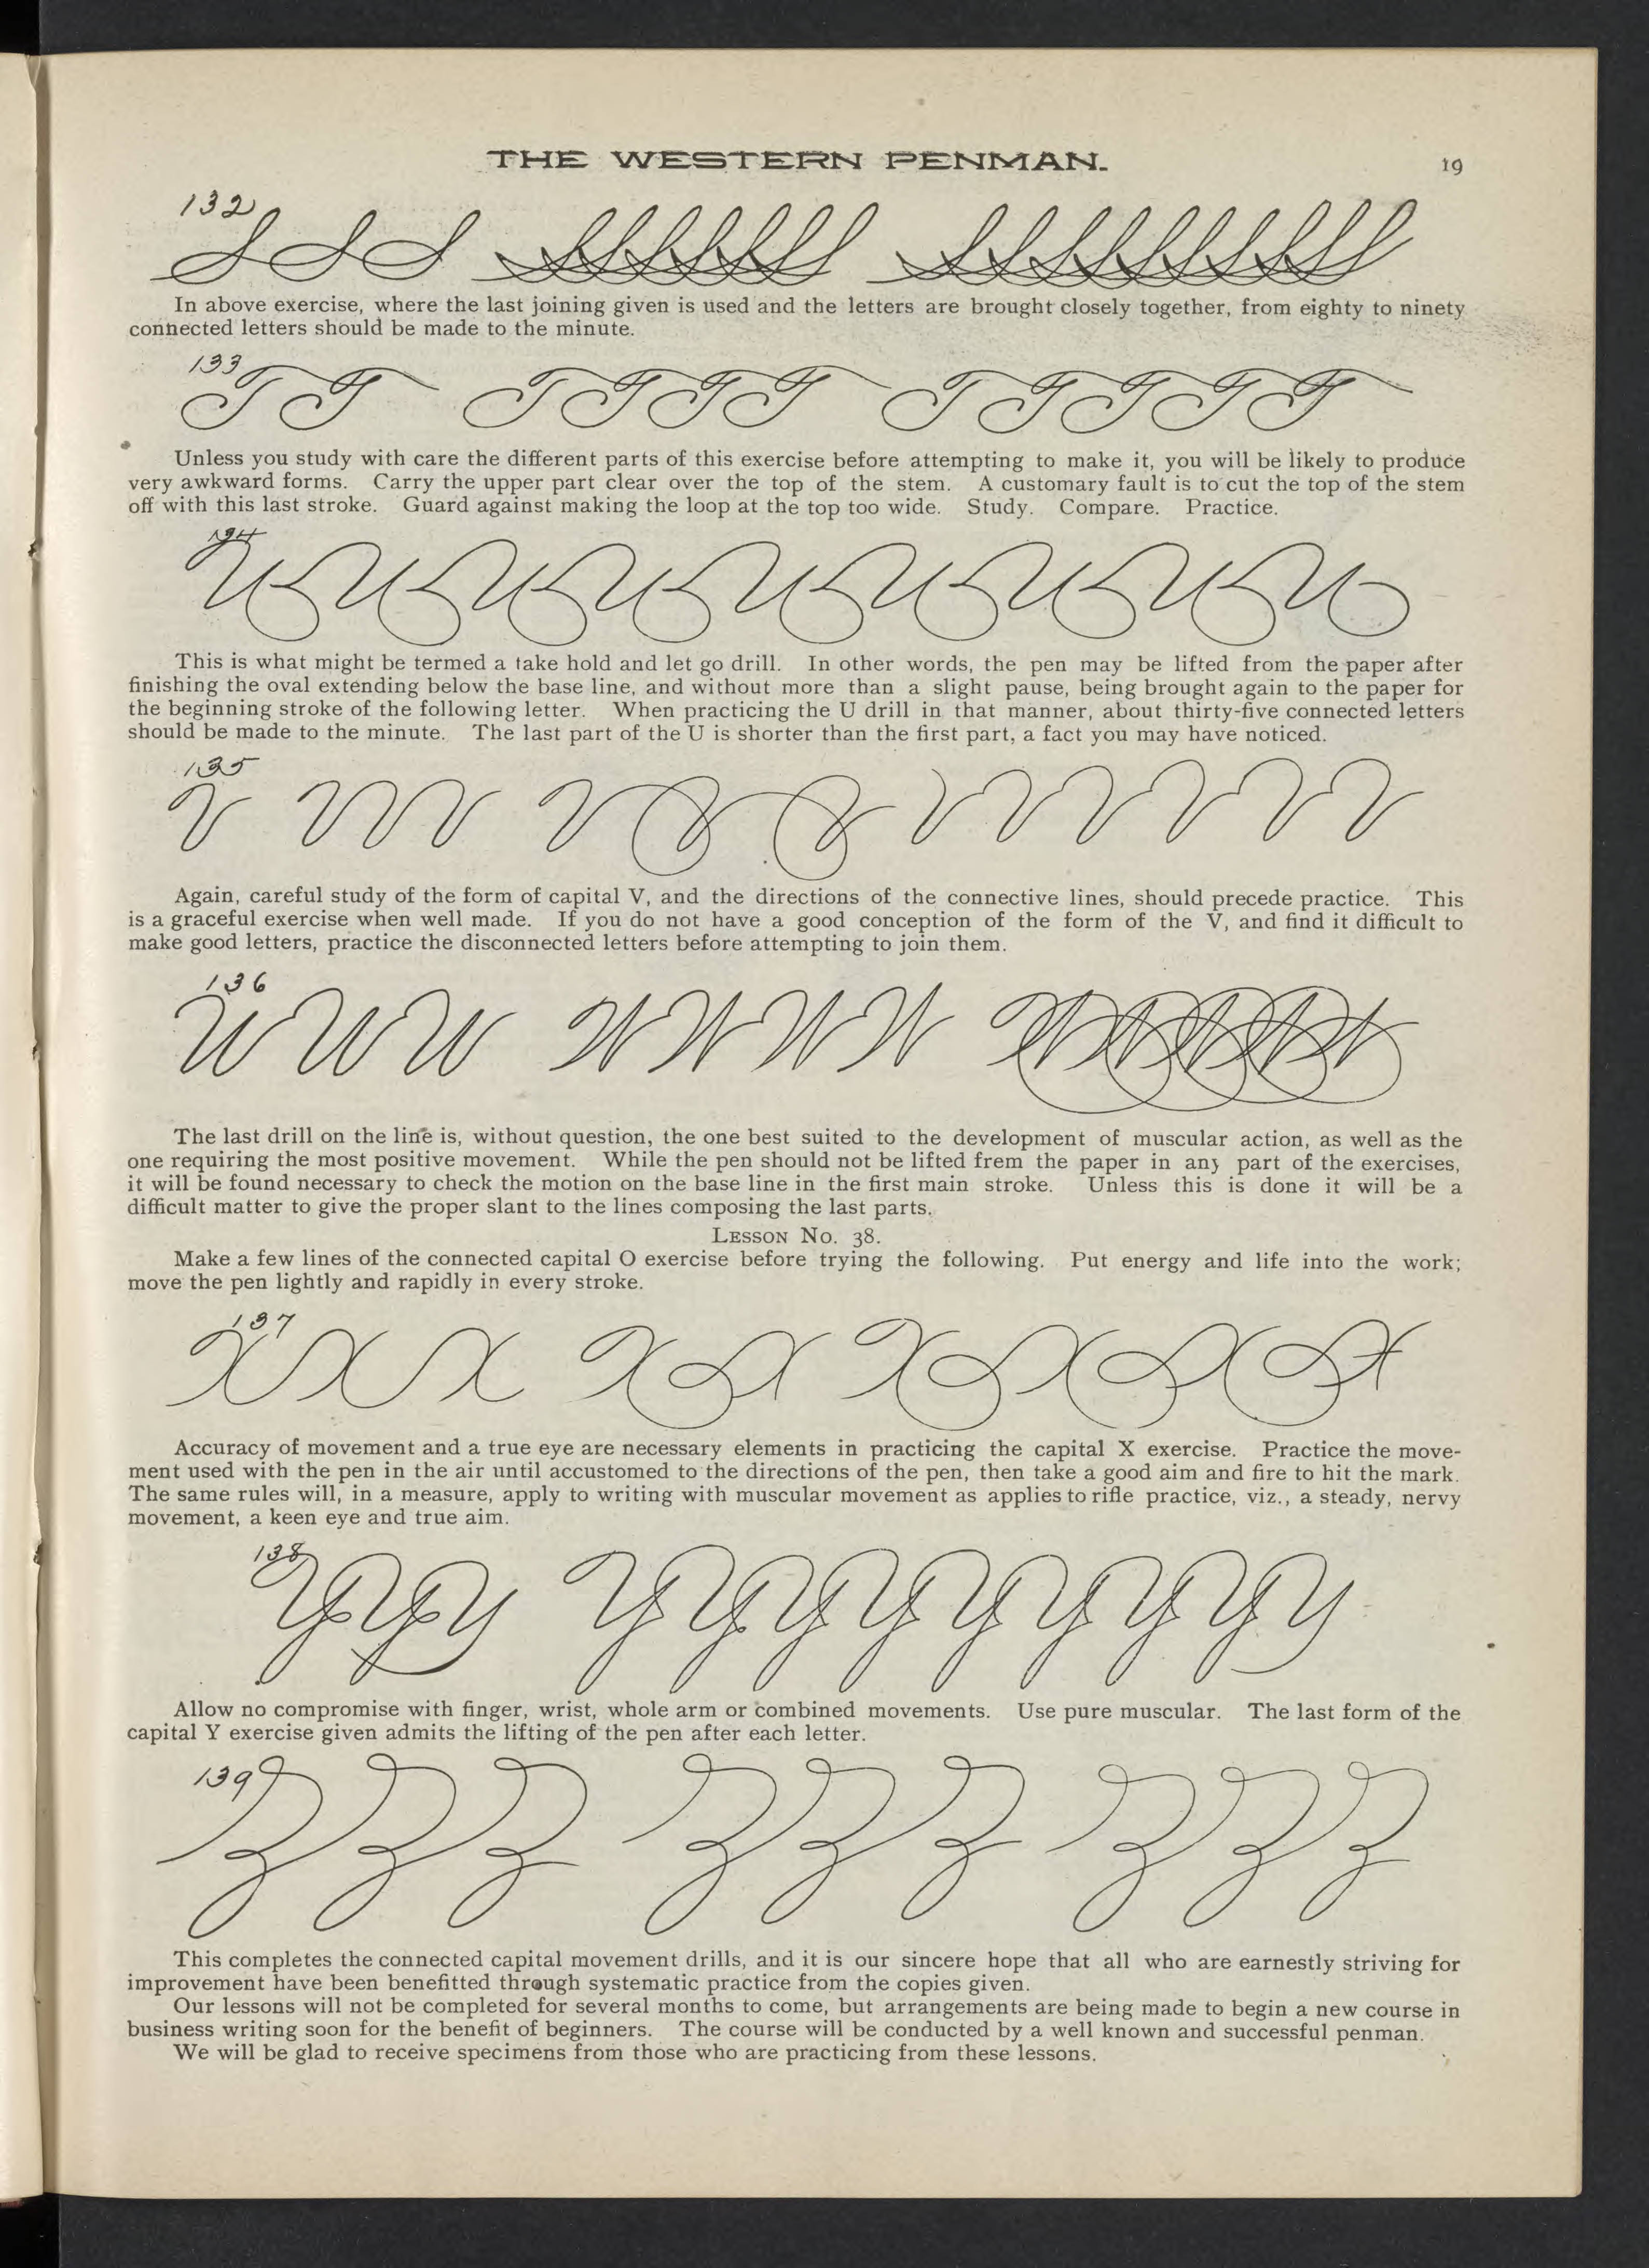 THE WESTERN PENMAN. 19
132
In above exercise, where the last joining given is used and the letters are brought closely together, from eighty to ninety
connected letters should be made to the minute.
133
Unless you study with care the different parts of this exercise before attempting to make it, you will be likely to produce
very awkward forms. Carry the upper part clear over the top of the stem. A customary fault is to cut the top of the stem
off with this last stroke. Guard against making the loop at the top too wide. Study. Compare. Practice.
134
This is what might be termed a take hold and let go drill. In other words, the pen may be lifted from the paper after
finishing the oval extending below the base line, and without more than a slight pause, being brought again to the paper for
the beginning stroke of the following letter. When practicing the U drill in that manner, about thirty-five connected letters
should be made to the minute. The last part of the U is shorter than the first part, a fact you may have noticed.
135
Again, careful study of the form of capital V, and the directions of the connective lines, should precede practice. This
is a graceful exercise when well made. If you do not have a good conception of the form of the V, and find it difficult to
make good letters, practice the disconnected letters before attempting to join them.
136
The last drill on the line is, without question, the one best suited to the development of muscular action, as well as the
one requiring the most positive movement. While the pen should not be lifted frem the paper in any part of the exercises,
it will be found necessary to check the motion on the base line in the first main stroke. Unless this is done it will be a
difficult matter to give the proper slant to the lines composing the last parts.
LESSON NO. 38.
Make a few lines of the connected capital O exercise before trying the following. Put energy and life into the work;
move the pen lightly and rapidly in every stroke.
137
Accuracy of movement and a true eye are necessary elements in practicing the capital X exercise. Practice the move-
ment used with the pen in the air until accustomed to the directions of the pen, then take a good aim and fire to hit the mark.
The same rules will, in a measure, apply to writing with muscular movement as applies to rifle practice, viz., a steady, nervy
movement, a keen eye and true aim.
138
Allow no compromise with finger, wrist, whole arm or combined movements. Use pure muscular. The last form of the
capital Y exercise given admits the lifting of the pen after each letter.
139
This completes the connected capital movement drills, and it is our sincere hope that all who are earnestly striving for
improvement have been benefitted through systematic practice from the copies given.
Our lessons will not be completed for several months to come, but arrangements are being made to begin a new course in
business writing soon for the benefit of beginners. The course will be conducted by a well known and successful penman.
We will be glad to receive specimens from those who are practicing from these lessons.